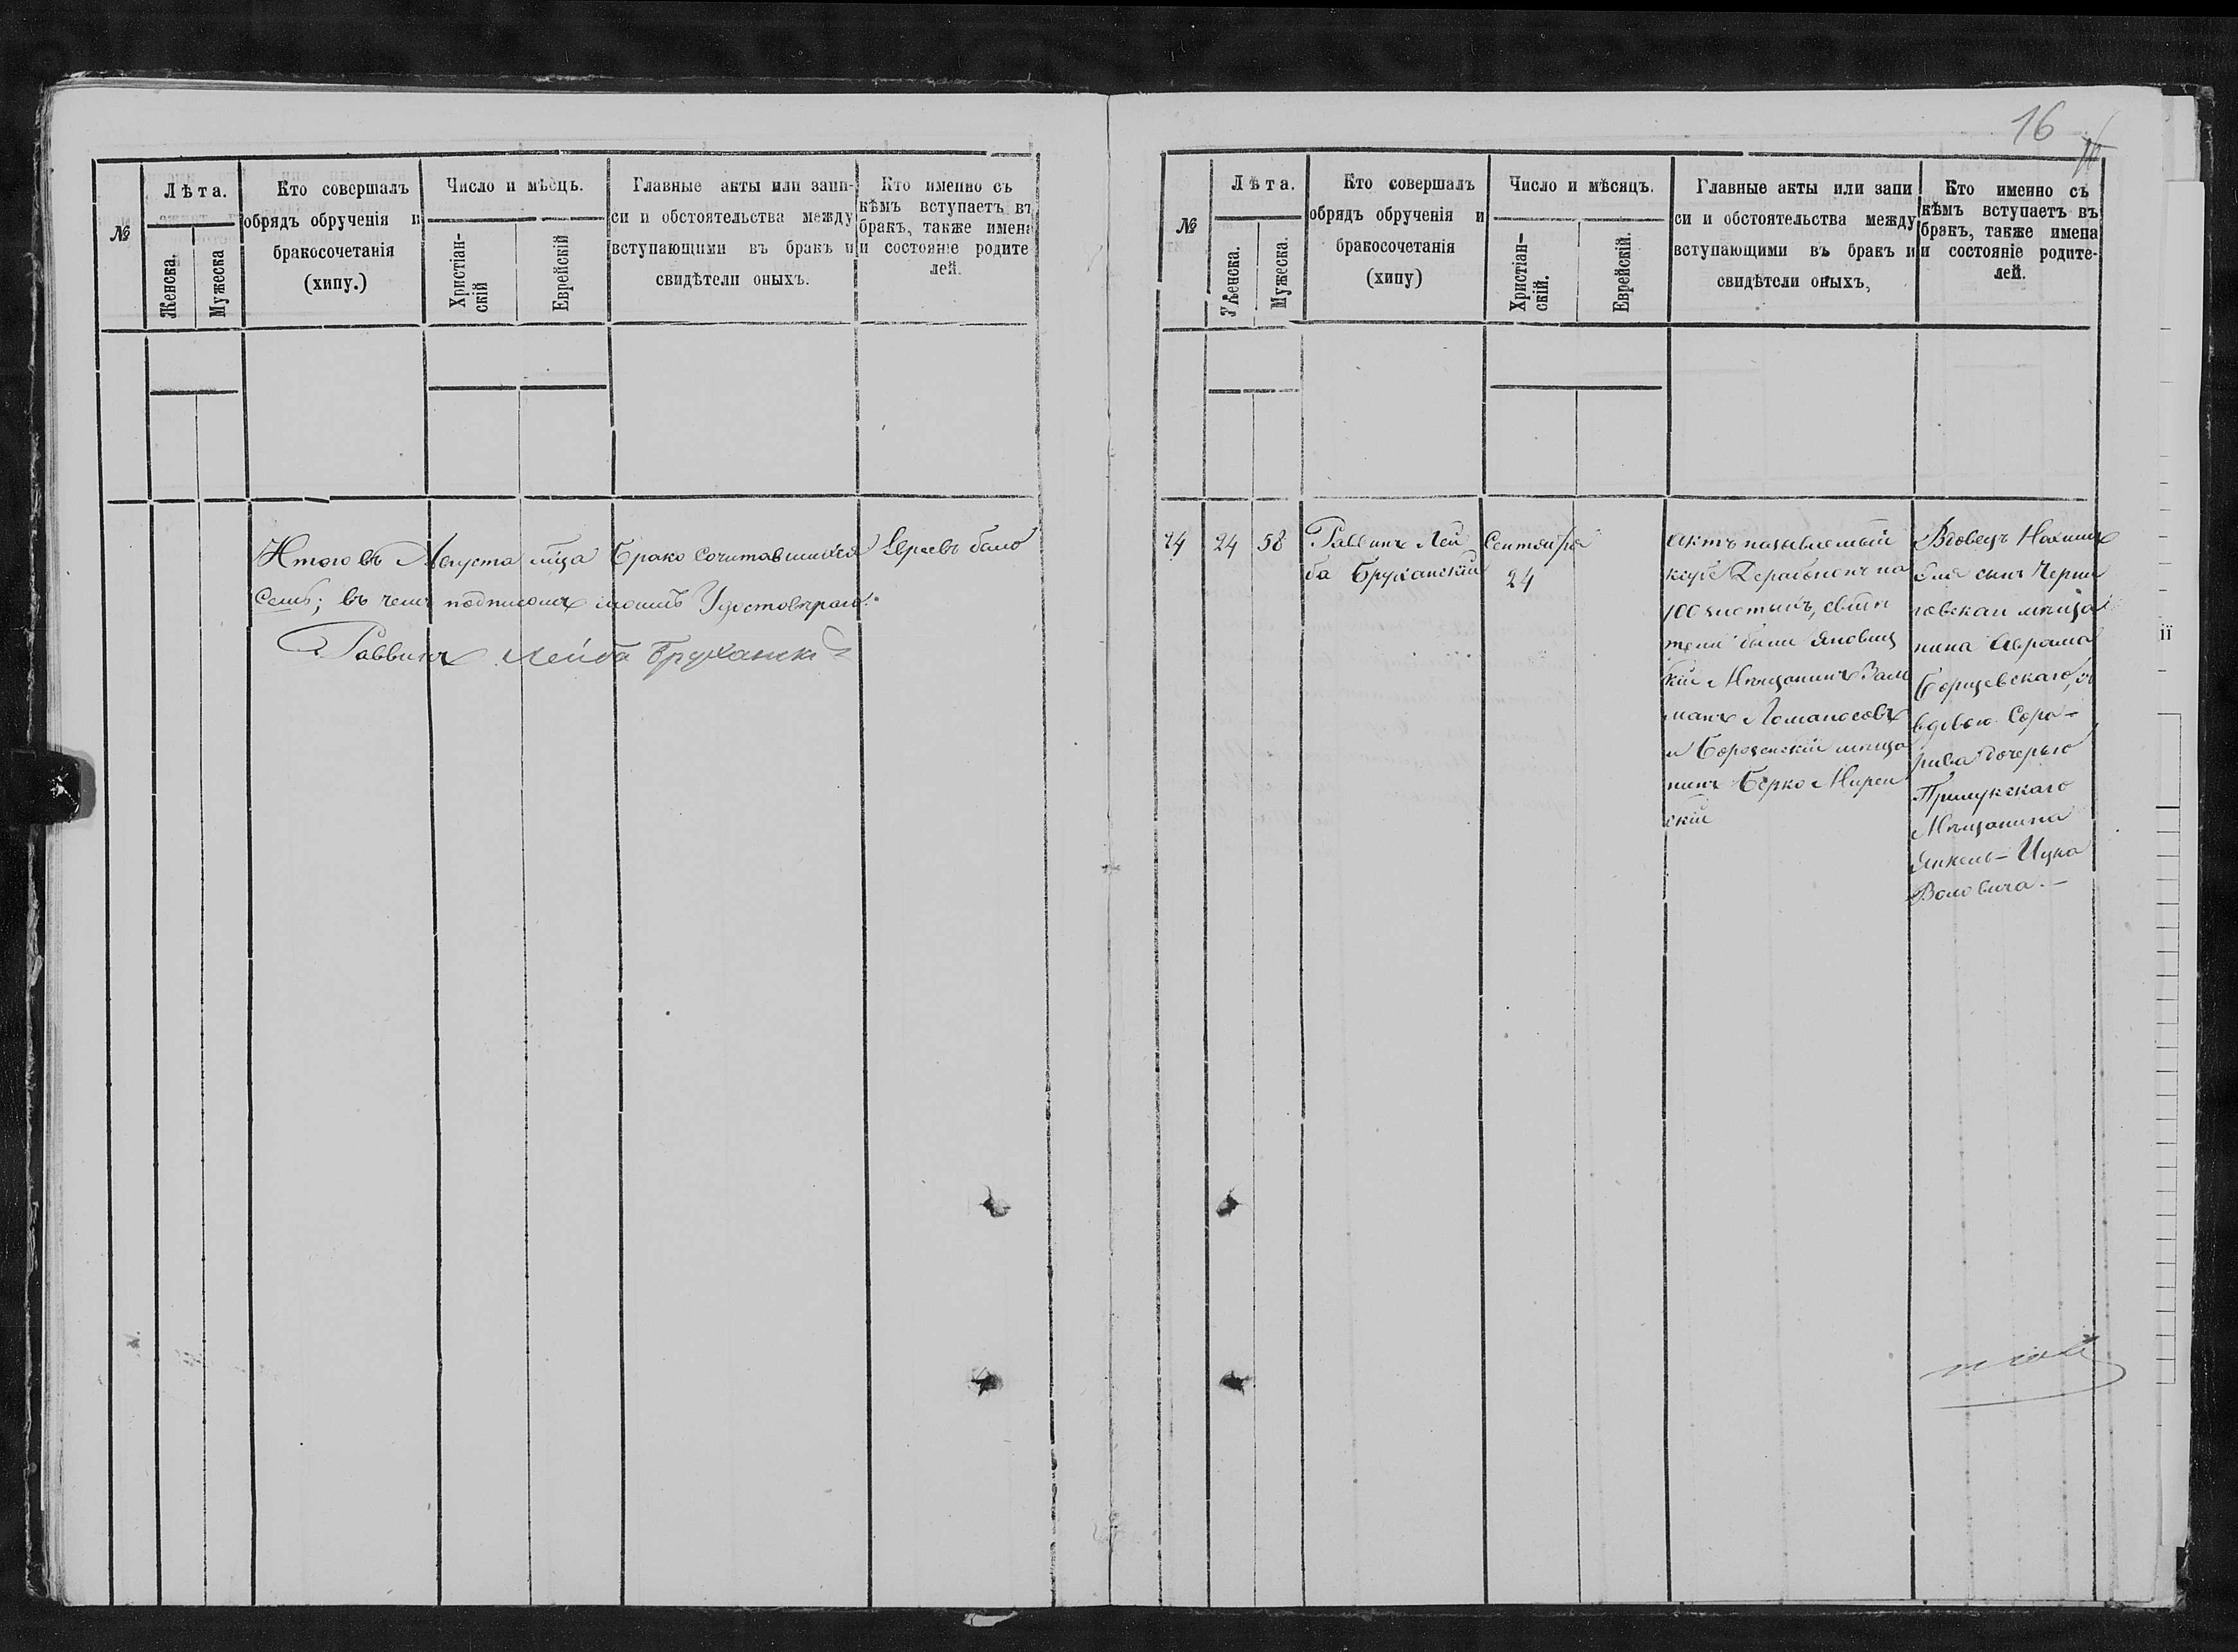 16
№
Лѣта.
Женска.
Мужеска
Кто совершалъ
обрядъ обрученія и
бракосочетанія
(хипу.)
Число и мѣсцъ.
Христіан-
скій
Еврейскій
Главные акты или запи-
си и обстоятельства между
вступающими въ бракъ и
свидѣтели оныхъ.
Кто именно съ
кѣмъ вступаетъ въ
бракъ, также имена
и состояніе родите
лей.
Итого въ Августа мца Брако сочитавшихся Евреевъ было
Семь; въ чемъ подписомъ моимъ Удостовѣряю.
Раввинъ Лейба Бруханскій
№
Лѣта.
Женска.
Мужеска.
Кто совершалъ
обрядъ обрученія и
бракосочетанія
(хипу)
Число и мѣсяцъ.
Христіан-
скій.
Еврейскій.
Главные акты или запи
си и обстоятельства между
вступающими въ бракъ и
свидѣтели оныхъ,
Кто именно съ
кѣмъ вступаетъ въ
бракъ, также имена
и состояніе родите-
лей.
24 24 58
Раввинъ Лей
ба Бруханскій
Сентября
24
Актъ называемый
Дерабонон на
100 свидѣ
тели были Яновщ
кій Мѣщанинъ Зал
манъ Ломаносовъ
и Борзенскій мѣща
нинъ Берко Мирен
скій
Вдовецъ Нахимъ
сынъ Черни
говскаи мѣща
нина Аврама
Борщевскаго, съ
вдовою Сора-
рива дочерью
Прилукскаго
Мѣщанина
Янкель-Ицка
Воловича.-